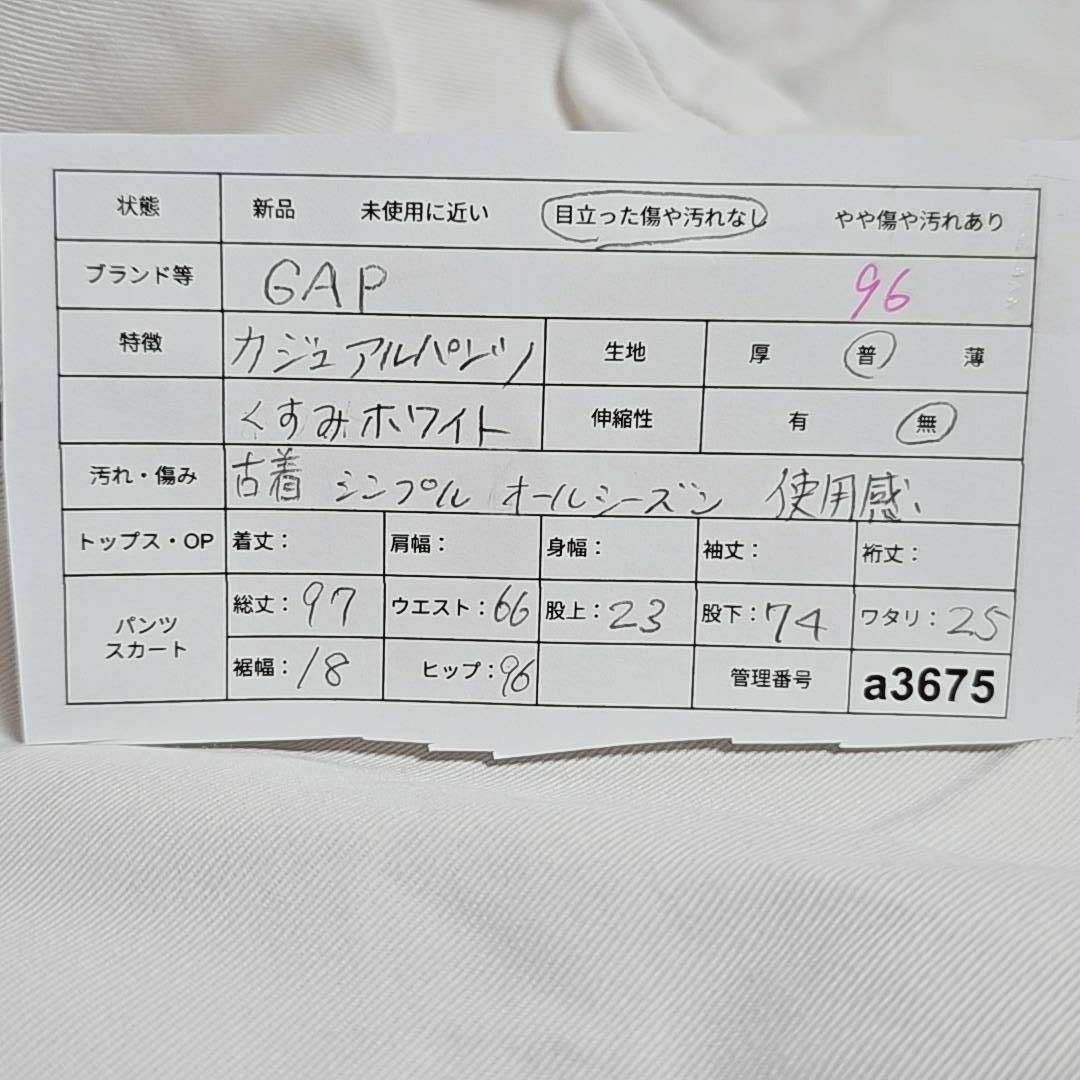 状態 新品 未使用に近い 目立った傷や汚れなし やや傷や汚れあり
ブランド等 GAP 96
特徴 カジュアルパンツ 生地 厚 普 薄
くすみホワイト 伸縮性 有 無
汚れ・傷み 古着 シンプル オールシーズン 使用感、
トップス・OP 着丈: 肩幅: 身幅: 袖丈: 裄丈:
パンツ
スカート
総丈:97 ウエスト:66 股上:23 股下:74 ワタリ:25
裾幅:18 ヒップ:96 管理番号 a3675